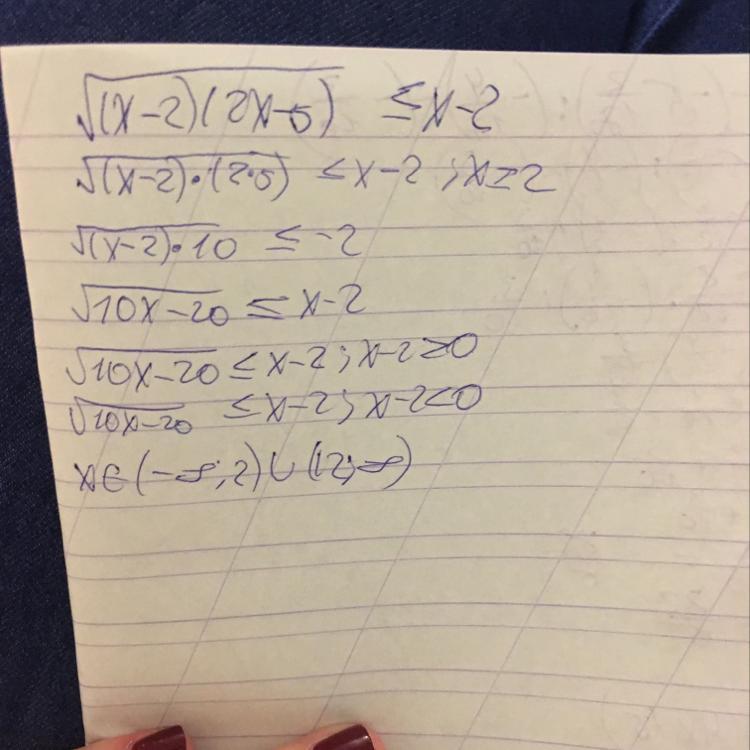 √(x-2)(2x-5) ≤ x-2
√(x-2)·(2·5) ≤ x-2 ; x ≥ 2
√(x-2)·10 ≤ -2
√10x-20 ≤ x-2
√10x-20 ≤ x-2 ; x-2≥0
√10x-20 ≤ x-2 ; x-2<0
x∈(-∞;2)∪(12;∞)